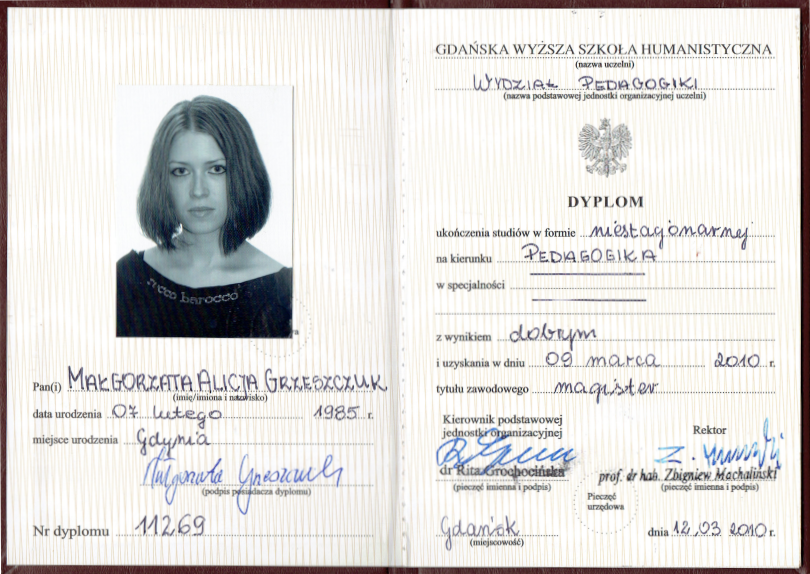 ficco barocco
Pan(i) MAŁGORZATA ALICJA GRZESZCZUK
(imię/imiona i nazwisko)
data urodzenia 07 lutego 1985 r.
miejsce urodzenia Gdynia
Małgorzata Grzeszczuk
(podpis posiadacza dyplomu)
Nr dyplomu 11269
GDAŃSKA WYŻSZA SZKOŁA HUMANISTYCZNA
(nazwa uczelni)
WYDZIAŁ PEDAGOGIKI
(nazwa podstawowej jednostki organizacyjnej uczelni)
DYPLOM
ukończenia studiów w formie niestacjonarnej
na kierunku PEDAGOGIKA
w specjalności
z wynikiem dobrym
i uzyskania w dniu 09 marca 2010 r.
tytułu zawodowego magister
Kierownik podstawowej
jednostki organizacyjnej
Rektor
dr Rita Grochocińska
prof. dr hab. Zbigniew Machaliński
(pieczęć imienna i podpis)
(pieczęć imienna i podpis)
Pieczęć
urzędowa
Gdańsk dnia 12.03 2010 r.
(miejscowość)